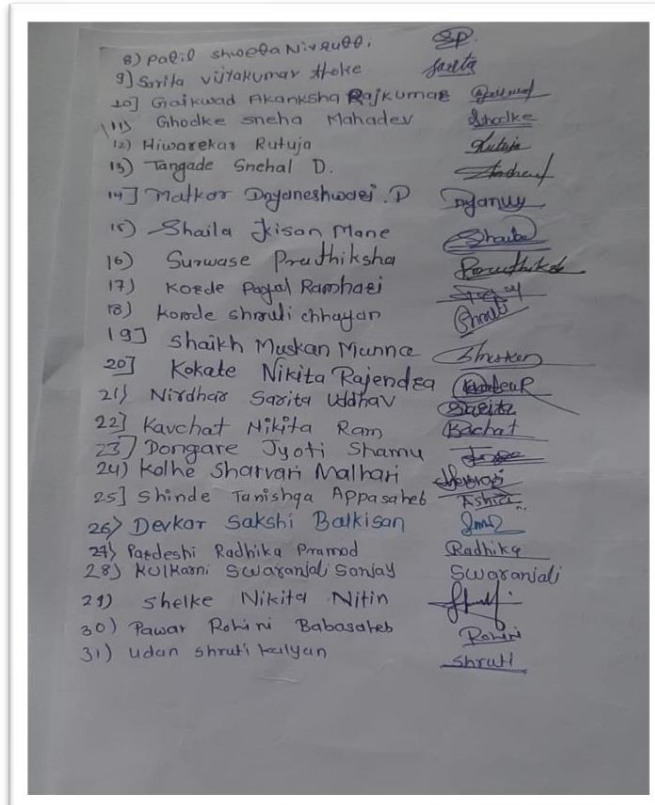 8) Patil Shweta Nivrutti. SP.
9] Sarita Vijaykumar Hoke Sarita
10] Gaikwad Akanksha Rajkumar
11) Ghodke Sneha Mahadev Ghodke
12) Hiwarekar Rutuja Rutuja
13) Tangade Snehal D.
14] Matkar Dnyaneshwari .D Dyanuu
15) Shaila Kisan Mane Shaila
16) Surwase Pruthiksha Pruthiksha
17) Korde Payal Ramhari
18) Korde Shruti Chhayan Shruti
19] Shaikh Muskan Munna Muskan
20] Kokate Nikita Rajendra
21) Nirdhar Sarita Uddhav Sarita
22] Kavchat Nikita Ram Kachat
23] Dongare Jyoti Shamu
24) Kolhe Sharvari Malhari
25] Shinde Tanishqa Appasaheb
26) Devkar Sakshi Balkisan
27) Pardeshi Radhika Pramod Radhika
28) Kulkarni Swaranjali Sanjay Swaranjali
29) Shelke Nikita Nitin
30) Pawar Rohini Babasaheb Rohini
31) Udan Shruti Kalyan Shruti